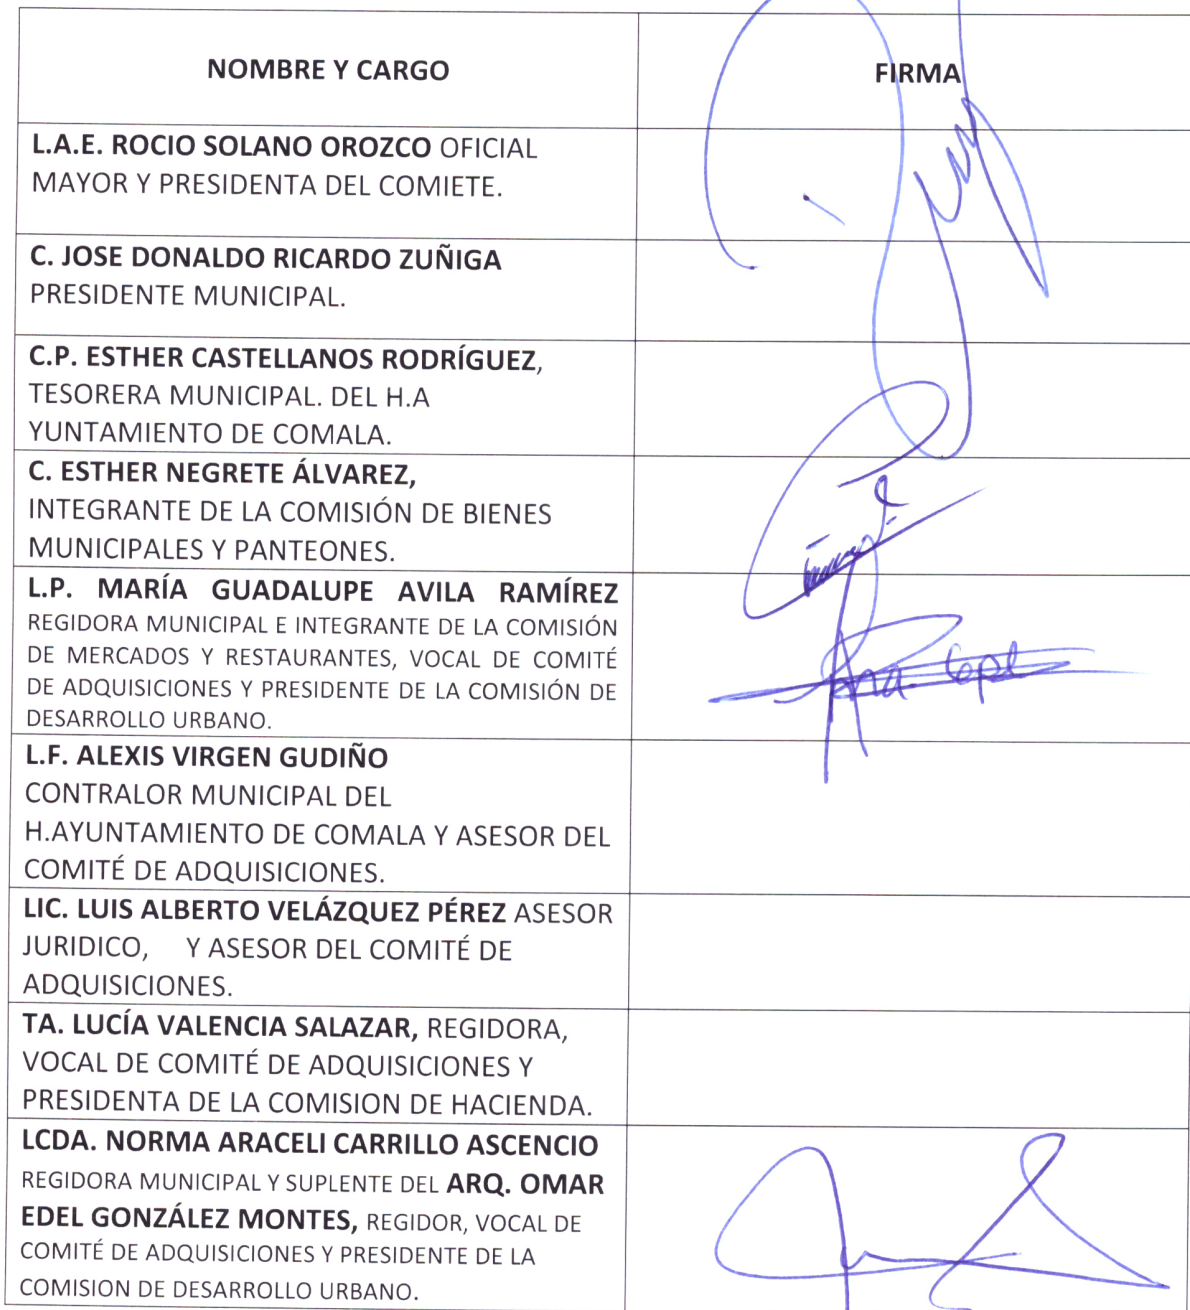 NOMBRE Y CARGO
FIRMA
L.A.E. ROCIO SOLANO OROZCO OFICIAL
MAYOR Y PRESIDENTA DEL COMIETE.
C. JOSE DONALDO RICARDO ZUÑIGA
PRESIDENTE MUNICIPAL.
C.P. ESTHER CASTELLANOS RODRÍGUEZ,
TESORERA MUNICIPAL. DEL H.A
YUNTAMIENTO DE COMALA.
C. ESTHER NEGRETE ÁLVAREZ,
INTEGRANTE DE LA COMISIÓN DE BIENES
MUNICIPALES Y PANTEONES.
L.P. MARÍA GUADALUPE AVILA RAMÍREZ
REGIDORA MUNICIPAL E INTEGRANTE DE LA COMISIÓN
DE MERCADOS Y RESTAURANTES, VOCAL DE COMITÉ
DE ADQUISICIONES Y PRESIDENTE DE LA COMISIÓN DE
DESARROLLO URBANO.
L.F. ALEXIS VIRGEN GUDIÑO
CONTRALOR MUNICIPAL DEL
H.AYUNTAMIENTO DE COMALA Y ASESOR DEL
COMITÉ DE ADQUISICIONES.
LIC. LUIS ALBERTO VELÁZQUEZ PÉREZ ASESOR
JURIDICO, Y ASESOR DEL COMITÉ DE
ADQUISICIONES.
TA. LUCÍA VALENCIA SALAZAR, REGIDORA,
VOCAL DE COMITÉ DE ADQUISICIONES Y
PRESIDENTA DE LA COMISION DE HACIENDA.
LCDA. NORMA ARACELI CARRILLO ASCENCIO
REGIDORA MUNICIPAL Y SUPLENTE DEL ARQ. OMAR
EDEL GONZÁLEZ MONTES, REGIDOR, VOCAL DE
COMITÉ DE ADQUISICIONES Y PRESIDENTE DE LA
COMISION DE DESARROLLO URBANO.